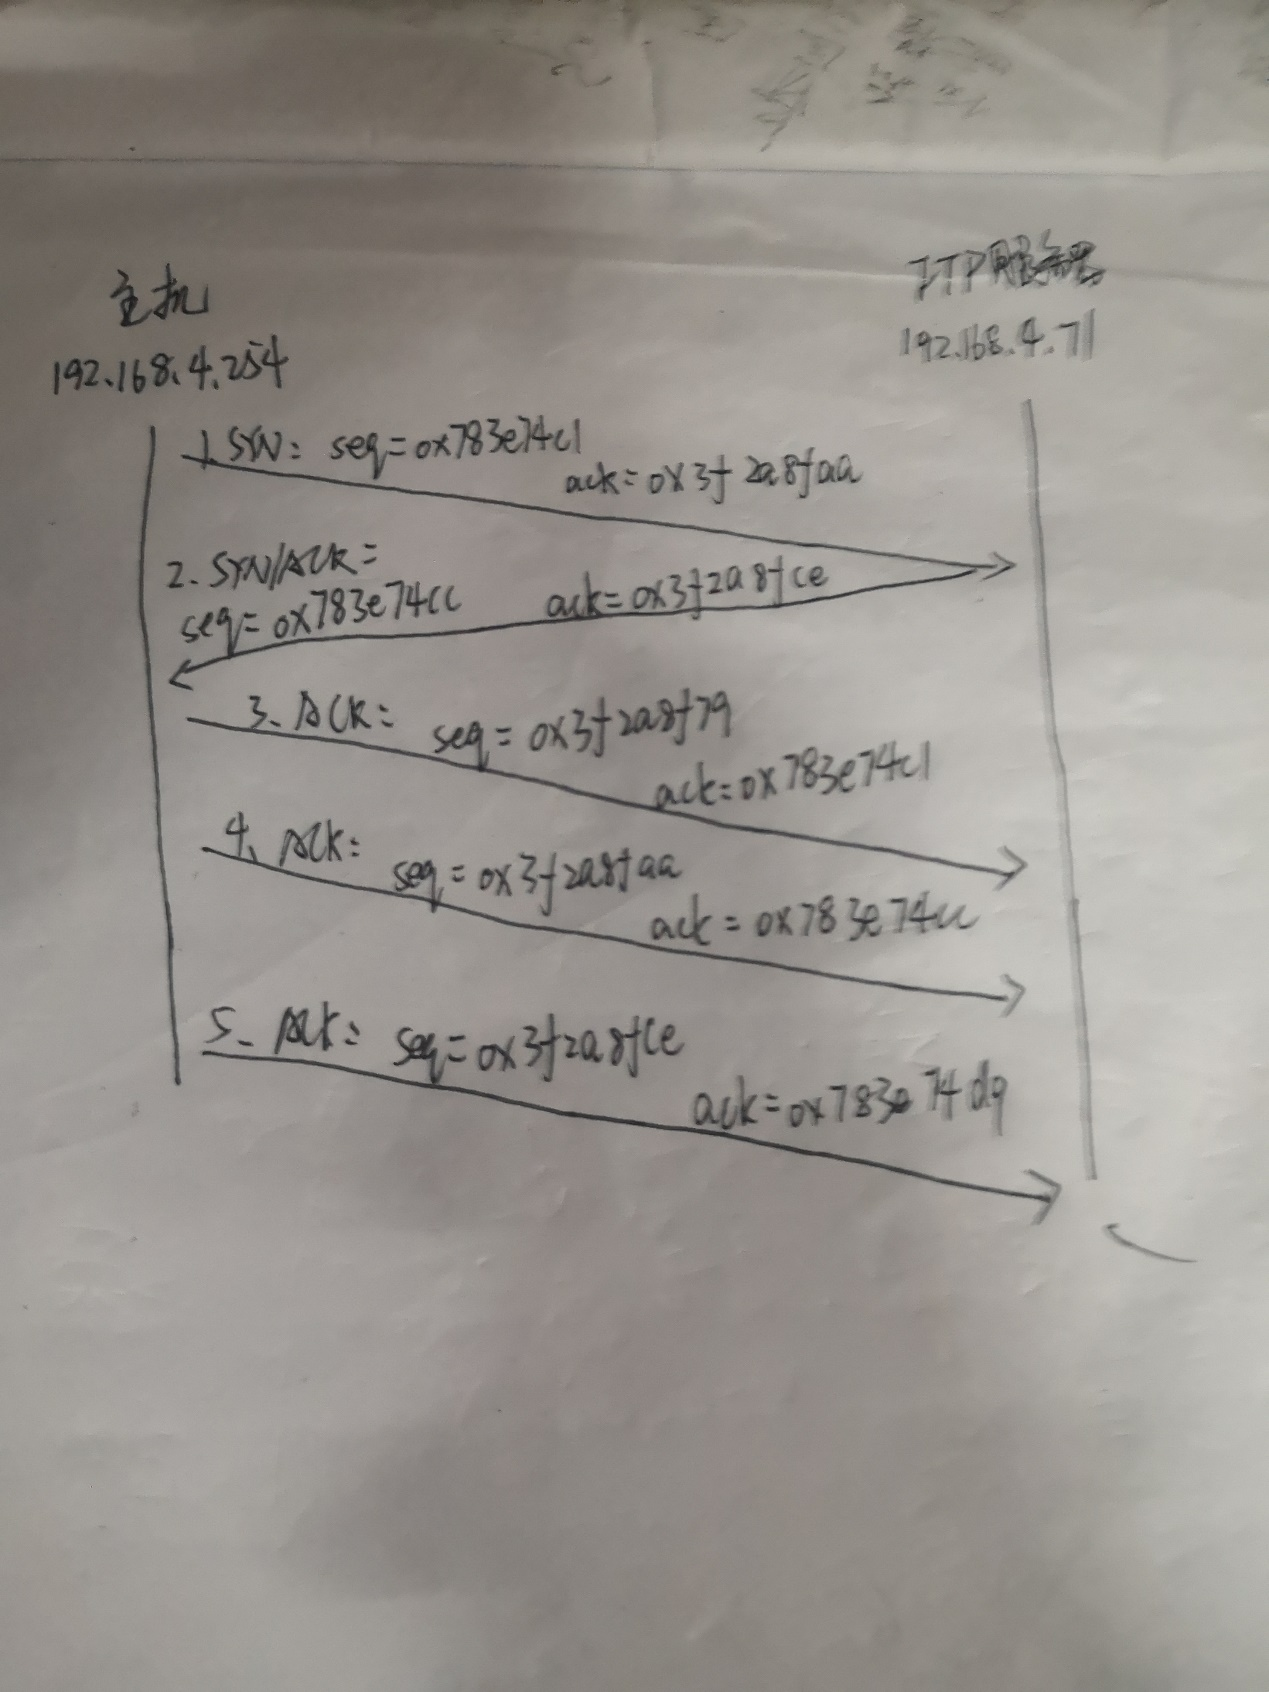 主机
192.168.4.254
FTP服务器
192.168.4.71
1. SYN: seq=0x783e74c1
ack=0x3f2a8faa
2. SYN/ACK=
seq=0x783e74cc ack=0x3f2a8fce
3. ACK: seq=0x3f2a8f79
ack=0x783e74c1
4. ACK: seq=0x3f2a8faa
ack=0x783e74cc
5. ACK: seq=0x3f2a8fce
ack=0x783e74d9